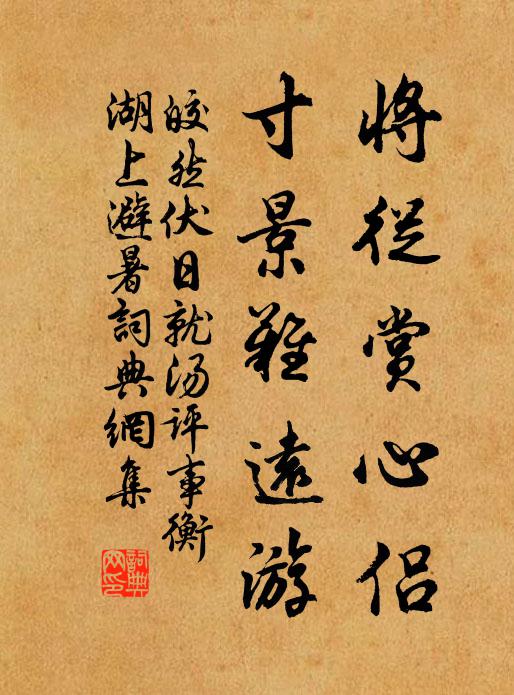 將從賞心侶
寸景難遠游
皎然伏日就湯評事衡
湖上避暑詞典網集
詞典
网印